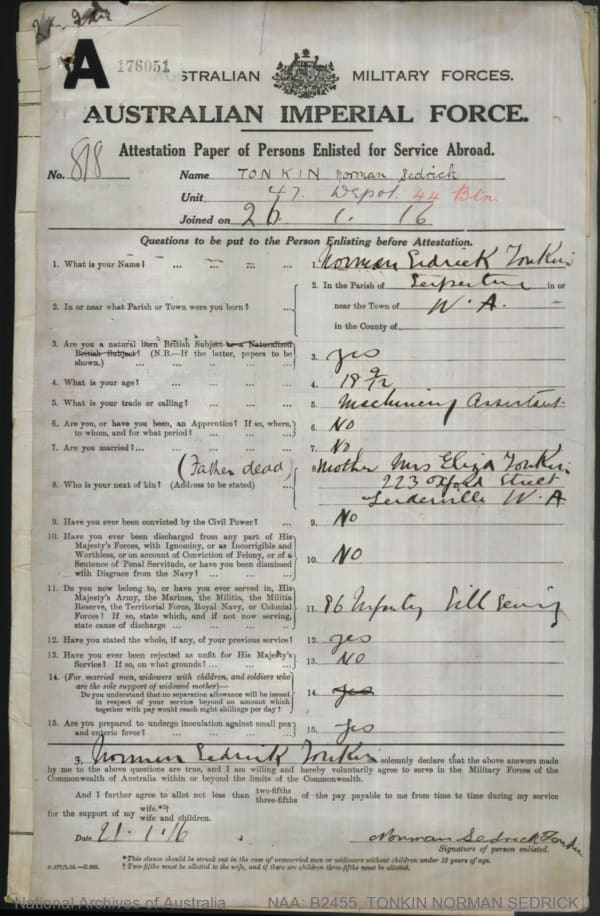 A 176051
AUSTRALIAN MILITARY FORCES.
AUSTRALIAN IMPERIAL FORCE.
Attestation Paper of Persons Enlisted for Service Abroad.
No. 818 Name TONKIN Norman Sedrick
Unit 47. Depot. 44 Btn
Joined on 26. 1. 16
Questions to be put to the Person Enlisting before Attestation.
1. What is your Name? ... ... ... ... 1. Norman Sedrick Tonkin
2. In or near what Parish or Town were you born? ... 2. In the Parish of Serpentine in or
near the Town of W.A.
in the County of
3. Are you a natural born British Subject or a Naturalized
British Subject? (N.B.—If the latter, papers to be
shown.) ... ... ... ... ... 3. yes
4. What is your age? ... ... ... ... 4. 18 9/12
5. What is your trade or calling? ... ... ... 5. Machining Assistant
6. Are you, or have you been, an Apprentice? If so, where,
to whom, and for what period? ... ... ... 6. NO
7. Are you married? ... ... ... ... 7. NO
(Father dead) 8. Mother Mrs Eliza Tonkin
8. Who is your next of kin? (Address to be stated) ... 223 Oxford Street
Leederville W.A
9. Have you ever been convicted by the Civil Power? ... 9. NO
10. Have you ever been discharged from any part of His
Majesty's Forces, with Ignominy, or as Incorrigible and
Worthless, or on account of Conviction of Felony, or of a
Sentence of Penal Servitude, or have you been dismissed
with Disgrace from the Navy? ... ... ... 10. NO
11. Do you now belong to, or have you ever served in, His
Majesty's Army, the Marines, the Militia, the Militia
Reserve, the Territorial Force, Royal Navy, or Colonial
Forces? If so, state which, and if not now serving,
state cause of discharge ... ... ... 11. 86 Infantry Still Serving
12. Have you stated the whole, if any, of your previous service? 12. yes
13. Have you ever been rejected as unfit for His Majesty's
Service? If so, on what grounds? ... ... ... 13. NO
14. (For married men, widowers with children, and soldiers who
are the sole support of widowed mother)—
Do you understand that no separation allowance will be issued
in respect of your service beyond an amount which
together with pay would reach eight shillings per day? 14. yes
15. Are you prepared to undergo inoculation against small pox
and enteric fever? ... ... ... ... 15. yes
I, Norman Sedrick Tonkin solemnly declare that the above answers made
by me to the above questions are true, and I am willing and hereby voluntarily agree to serve in the Military Forces of the
Commonwealth of Australia within or beyond the limits of the Commonwealth.
And I further agree to allot not less than two-fifths three-fifths of the pay payable to me from time to time during my service
for the support of my wife.*† wife and children.
Date 21.1.16 Norman Sedrick Tonkin
Signature of person enlisted.
*This clause should be struck out in the case of unmarried men or widowers without children under 18 years of age.
† Two-fifths must be allotted to the wife, and if there are children three-fifths must be allotted.
National Archives of Australia NAA: B2455, TONKIN NORMAN SEDRICK